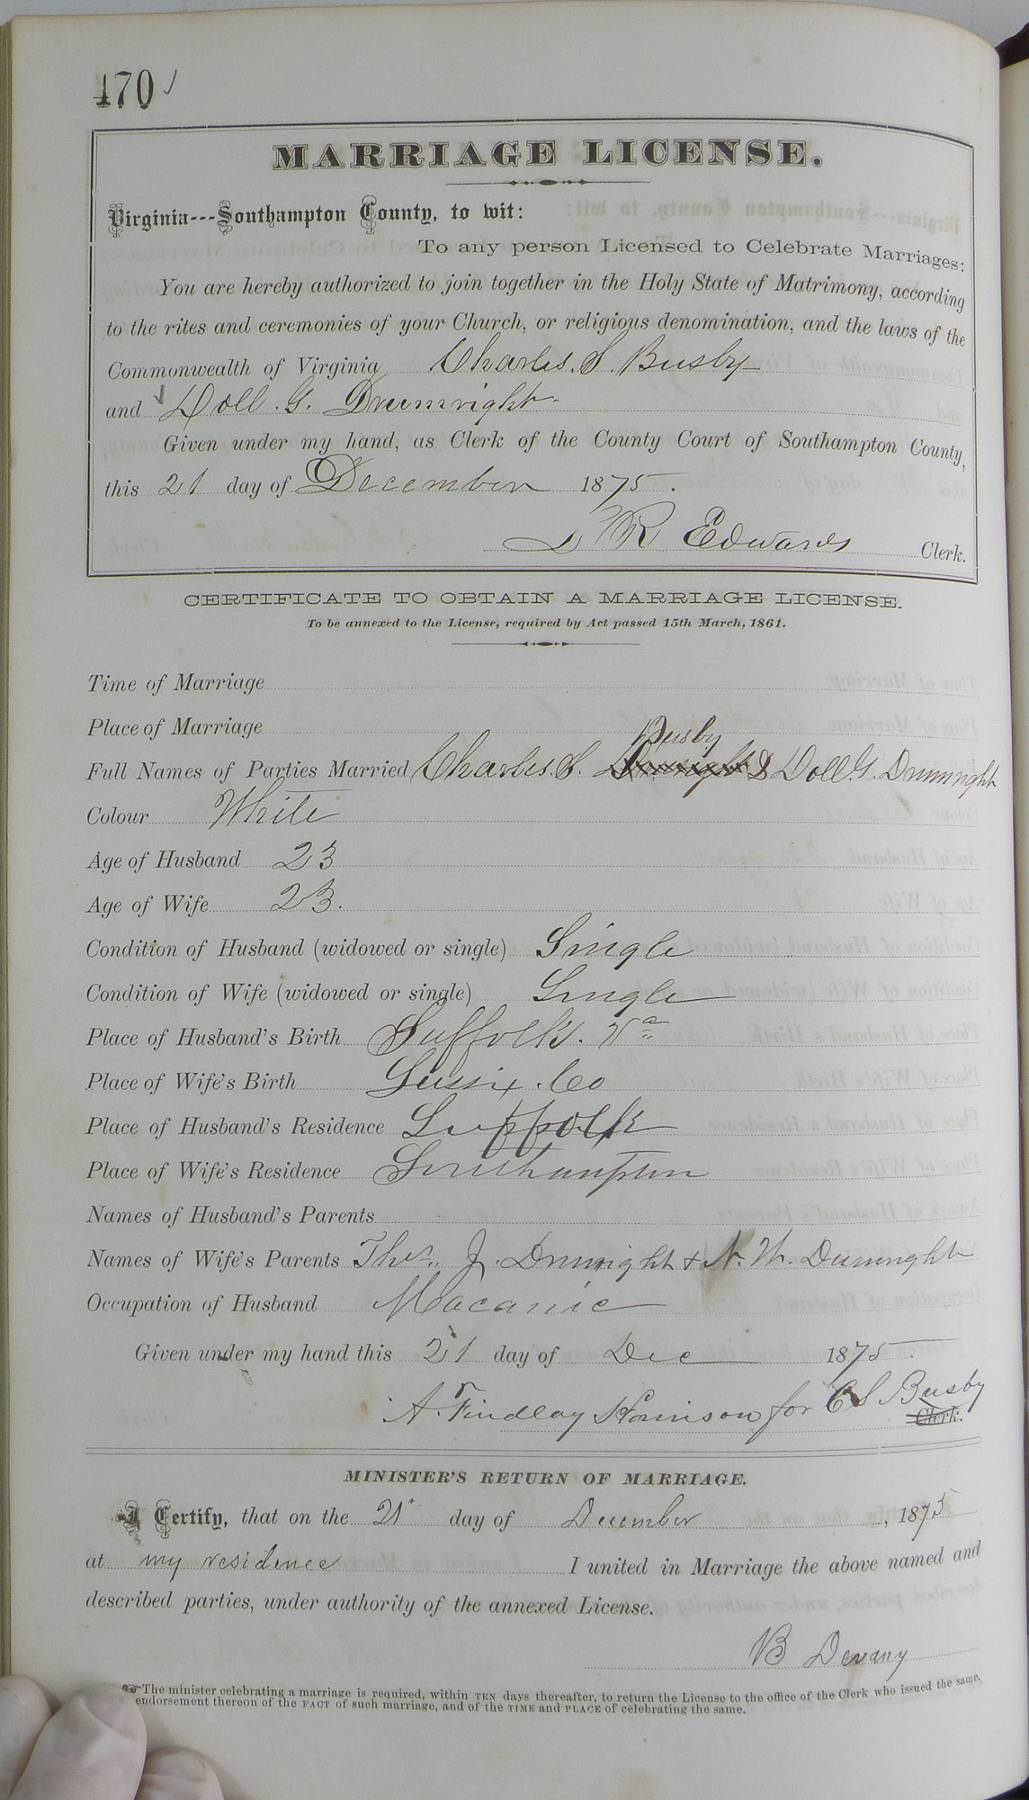 470
MARRIAGE LICENSE.
Virginia---Southampton County, to wit:
To any person Licensed to Celebrate Marriages:
You are hereby authorized to join together in the Holy State of Matrimony, according
to the rites and ceremonies of your Church, or religious denomination, and the laws of the
Commonwealth of Virginia Charles. S. Busby
and Doll. G. Drumwright
Given under my hand, as Clerk of the County Court of Southampton County,
this 21 day of December 1875.
L R Edwards Clerk.
CERTIFICATE TO OBTAIN A MARRIAGE LICENSE.
To be annexed to the License, required by Act passed 15th March, 1861.
Time of Marriage
Place of Marriage
Busby
Full Names of Parties Married Charles. S. & Doll G. Drumright
Colour White
Age of Husband 23
Age of Wife 23.
Condition of Husband (widowed or single) Single
Condition of Wife (widowed or single) Single
Place of Husband's Birth Suffolk. Va
Place of Wife's Birth Sussix. Co
Place of Husband's Residence Suffolk
Place of Wife's Residence Southampton
Names of Husband's Parents
Names of Wife's Parents Thos. J. Drumright & N. W. Drumright
Occupation of Husband Macanic
Given under my hand this 21 day of Dec 1875.
A. Findlay Harrison for C S Busby
Clerk.
MINISTER'S RETURN OF MARRIAGE.
I Certify, that on the 21 day of December, 1875
at my residence I united in Marriage the above named and
described parties, under authority of the annexed License.
B Devany
The minister celebrating a marriage is required, within TEN days thereafter, to return the License to the office of the Clerk who issued the same,
endorsement thereon of the FACT of such marriage, and of the TIME and PLACE of celebrating the same.